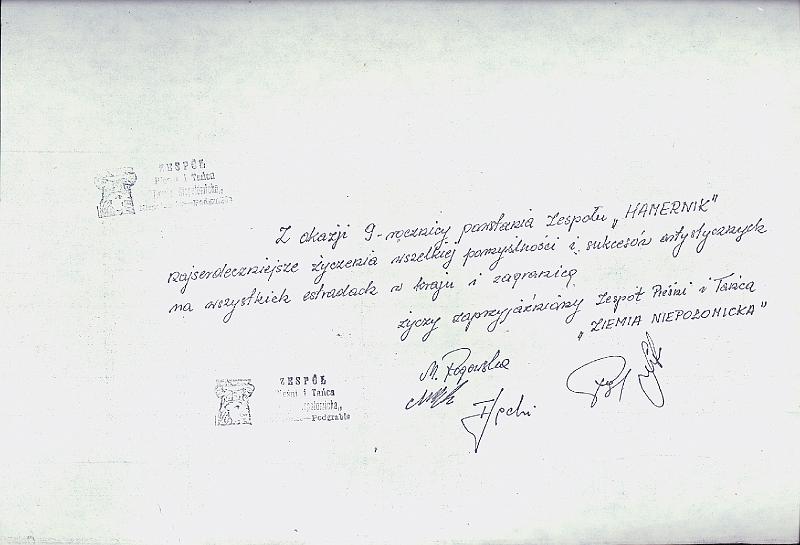 ZESPÓŁ
Pieśni i Tańca
Podgrabie
Z okazji 9-rocznicy powstania Zespołu „HAMERNIK"
najserdeczniejsze życzenia wszelkiej pomyślności i sukcesów artystycznych
na wszystkich estradach w kraju i zagranicą
życzy zaprzyjaźniony Zespół Pieśni i Tańca
„ZIEMIA NIEPOŁOMICKA"
M. Rogowska
ZESPÓŁ
Pieśni i Tańca
Podgrabie